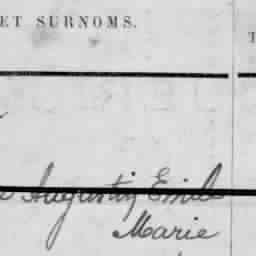 ET SURNOMS.
Augustin Emile
Marie